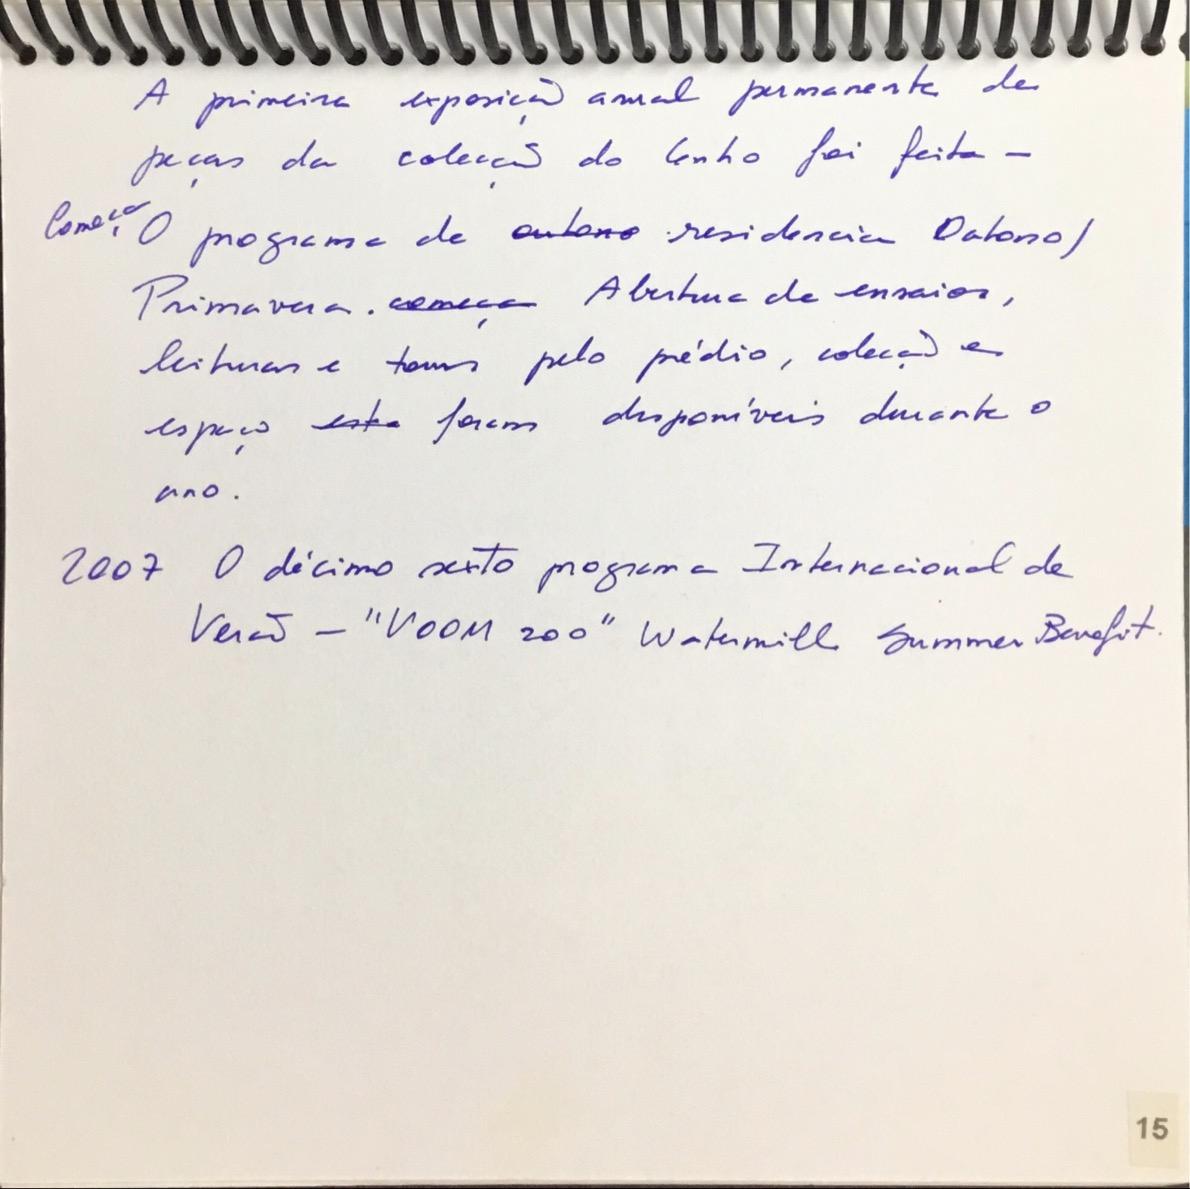 A primeira exposição anual permanente de
peças da colecção do Cenho foi feita –
Começa O programa de outono residencia Outono/
Primavera. começa Abertura de ensaios,
leituras e tours pelo prédio, colecção e
espaço este foram disponíveis durante o
ano.
2007 O décimo sexto programa Internacional de
Verão – "VOOM 200" Watermill Summer Benefit.
15